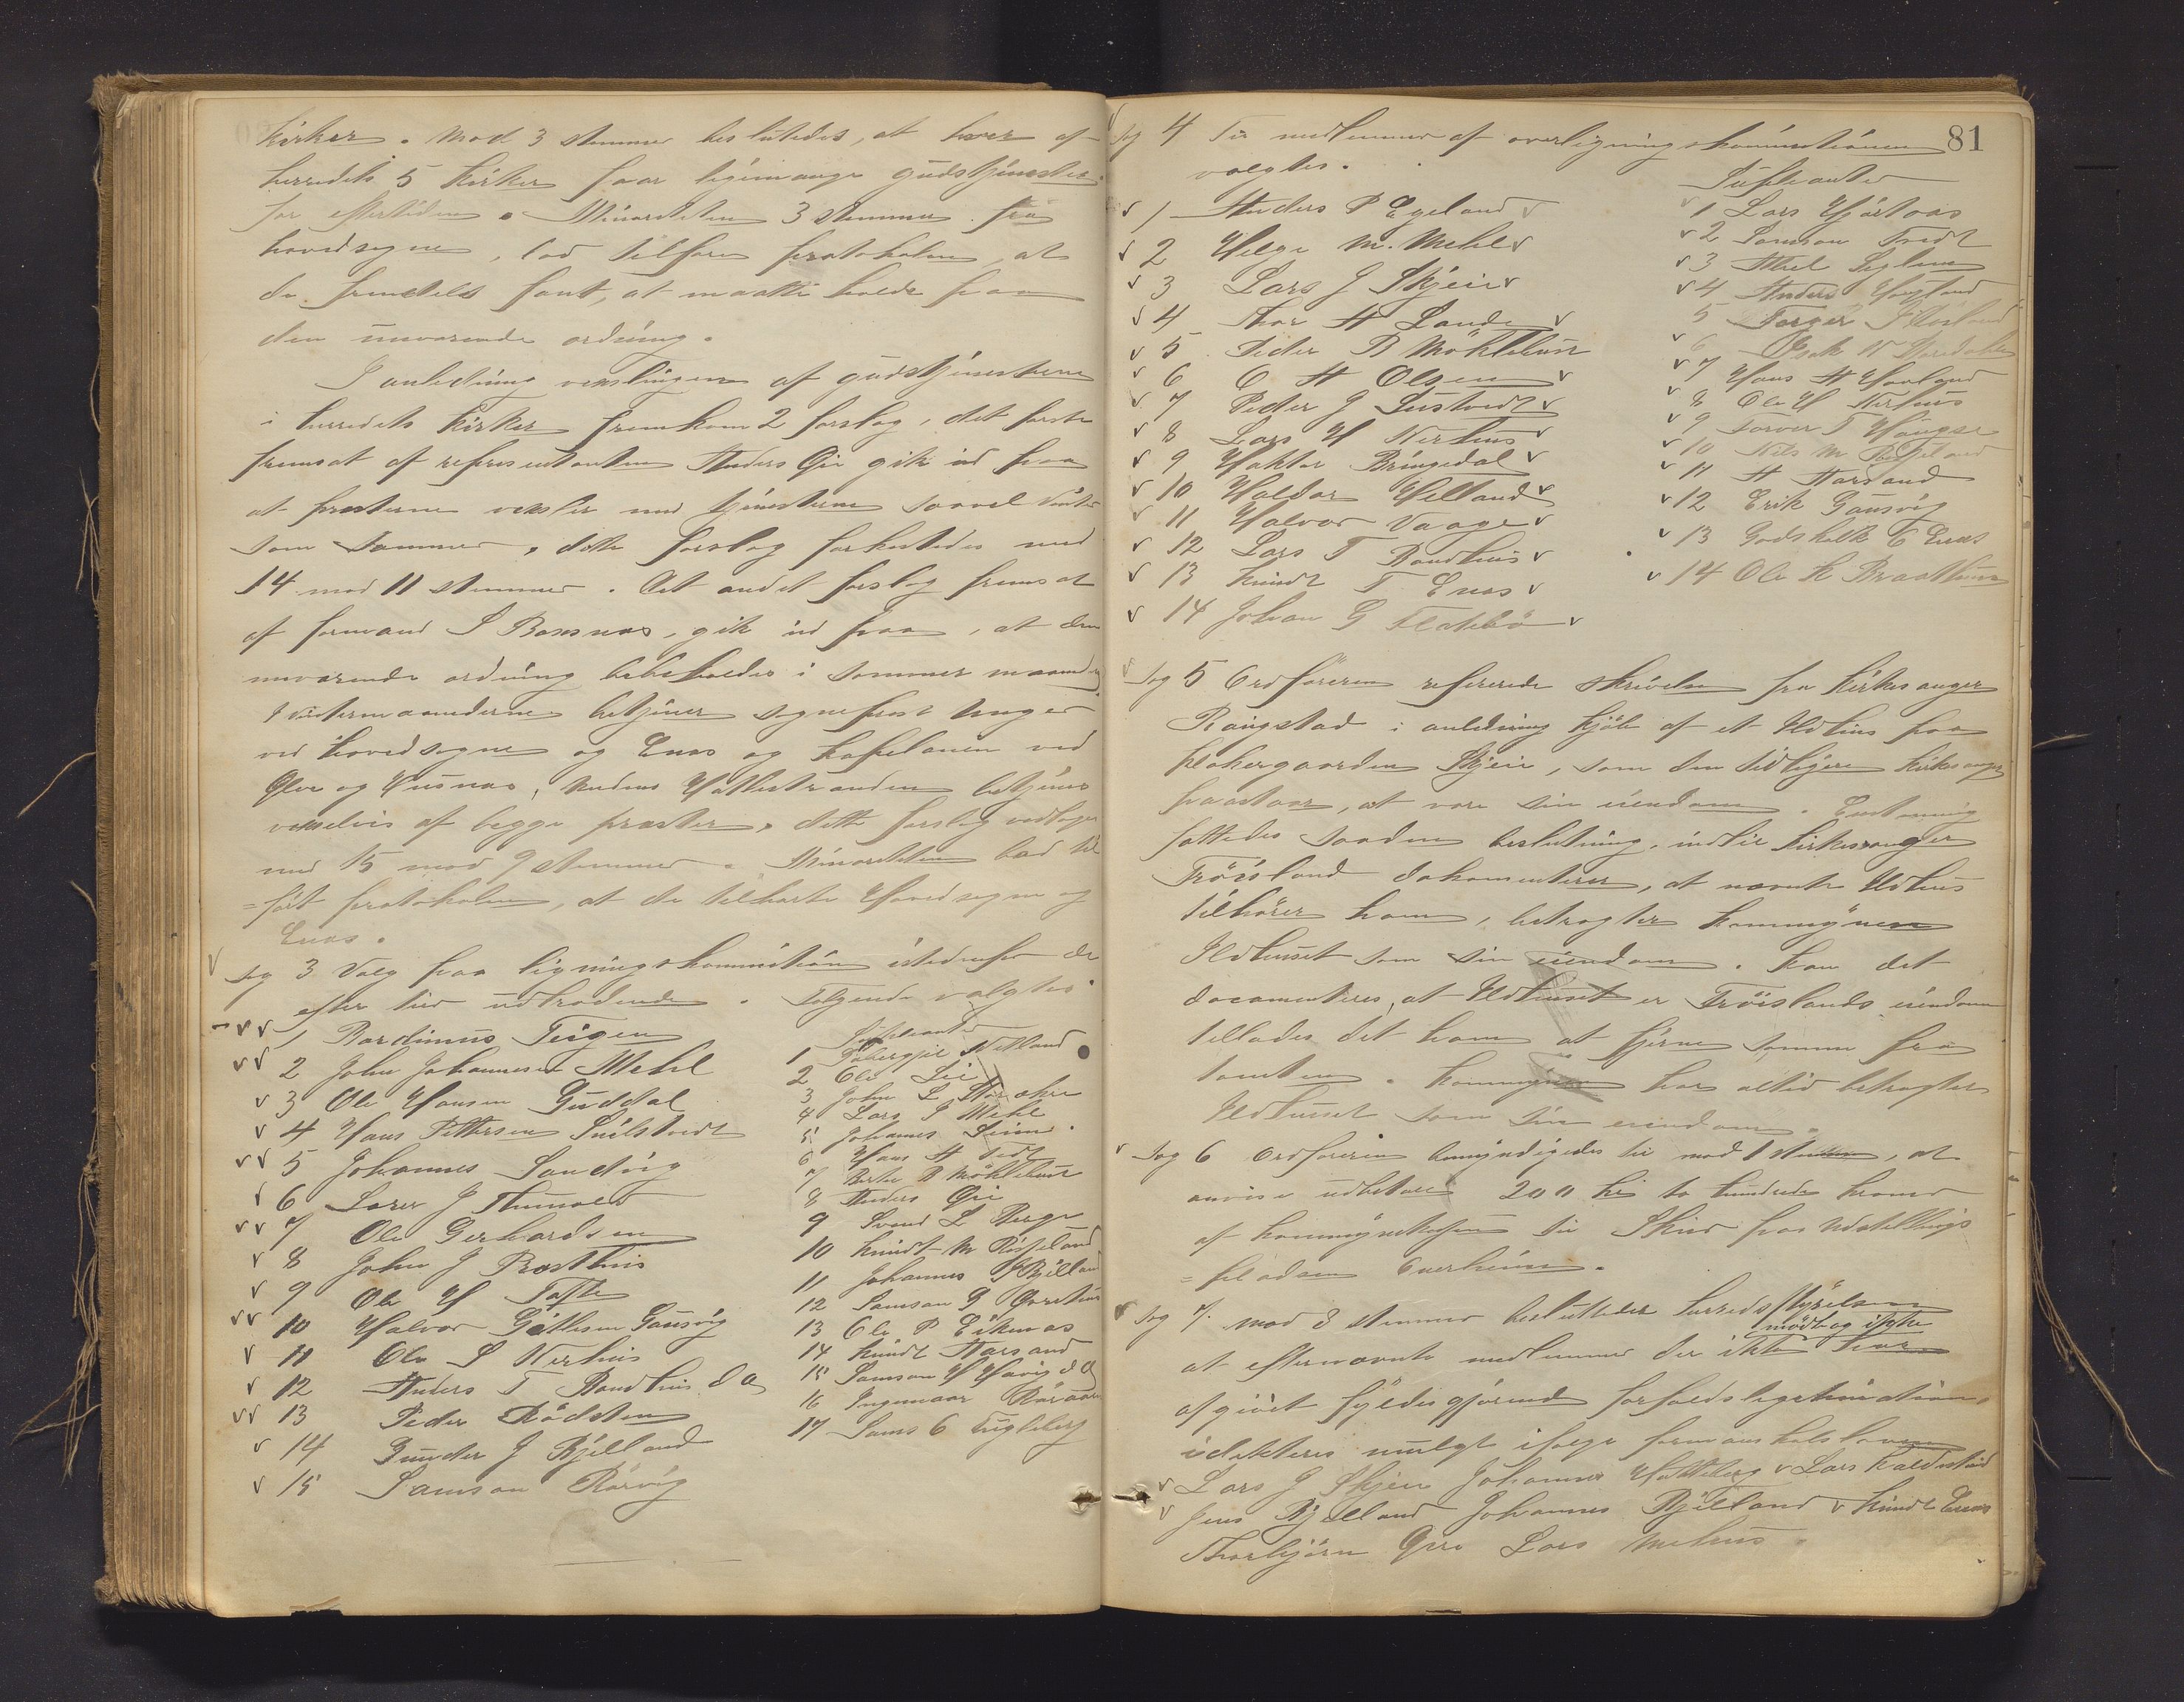 kirker. Mod 3 stemmer beslutedes, at hver af
herredets 5 kirker faar ligemange gudstjenester
for eftertiden. Minoriteten 3 stemmer fra
hovedsogne, lod tilføre protokolen, at
de fremdeles fant, at maatte holde paa
den nuværende ordning.
I anledning vekslingen af gudstjenesterne
i herredets kirker fremkom 2 forslag, det første
fremsat af representanten Anders Øie gik ud paa
at presterne veksler med tjenesterne saavel vinter
som sommer, dette forslag forkastedes med
14 mod 11 stemmer. Det andet forslag fremsat
af formand S Baasnæs, gik ud paa, at den
nuværende ordning bibeholdes i sommer maanederne
I vintermaanederne betjener sogneprest Unger
ved Hovedsogne og Enæs og kapelanen ved
Ølve og Husnæs, medens Hatlestranden betjenes
vekselvis af begge prester, dette forslag vedtoges
med 15 mod 9 stemmer. Minoriteten bad til
=ført protokolen, at de tilhørte Hovedsogne og
Enæs.
Sag 3 Valg paa ligningskommission istedenfor de
efter tur udtrædende. Følgende valgtes.
1 Bardinus Teigen
2 John Johannesen Mehl
3 Ole Hansen Guddal
4 Hans Pettersen Snilstvedt
5 Johannes Sandvig
6 Lars J
7 Ole Gerhardsen
8 John J Røsthus
9 Ole H Tofte
10 Halvor Gitlesen Gausvig
11 Ole S Nerhus
12 Anders T Bondhus d a
13 Peder Rødsten
14 Gunder J Bjelland
15 Samson Rørvig
Supleanter
1 Netland
2 Ole Lie
3 John L
4 Lars J Mehl
5 Johannes Seim.
6 Hans A Tvedt
7 B Møklebust
8 Anders Øie
9 Svend L Berge
10 Knudt M Røsseland
11 Johannes J Bjelland
12 Samson G
13 Ole P Eikenæs
14 Knudt Aarsand
15 Samson H Havig d a
16 Ingemaar
17 Sams O Fugleberg
81
Sag 4 Til medlemmer af overligningskommissionen
valgtes.
1 Anders P Egeland
2 Helge M. Mehl
3 Lars J Skjeie
4 Thor A Lande
5 Peder B Møklebust
6 O A Olsen
7 Peder J Sustvedt
8 Lars H Nerhus
9 Haktor Bringedal
10 Haldor Helland
11 Halvor Vaage
12 Lars T Bondhus
13 Knudt T Enæs
14 Johan G Flatebø
Supleanter
1 Lars Hjortaas
2 Samson Tvedt
3 Aksel
4 Anders Haugland
5 Torger
6 Isak
7 Hans A Haaland
8 Ole H Nerhus
9 Torver T Haugse
10 Nils M
11 A Aarsand
12 Erik Gausvig
13 Godskalk O Enæs
14 Ole K Braathun
Sag 5 Ordføreren refererede skrivelse fra kirkesanger
Raugstad i anledning kjøb af et Ildhus paa
klokergaarden Skjeie, som den tidligere kirkesanger
paastaar, at være sin eiendom. Enstemmig
fattedes saadan beslutning, indtil kirkesanger
Frøisland dokumenterer, at nævnte Ildhus
tilhører ham, betragter kommunen
Ildhuset som sin eiendom. kan det
documenteres, at Ildhuset er Frøislands eiendom
tillades det ham at fjerne samme fra
tomten. Kommunen har altid betragtet
Ildhuset som sin eiendom.
Sag 6 Ordføreren bemyndigedes til mod 1 stemme, at
anvise udbetalt 200 kr to hundrede kroner
af kommunekassen til Skur paa Udstillings
=pladsen Omvikdal.
Sag 7. Mod 3 stemmer besluttede herredsstyrelsen
at efternævnte medlemmer der ikke mødte og ikke har
afgivet fyldesgjørende forfaldslegitimation,
idekteres mulgt ifølge formanskabsloven
Lars J Skjeie Johannes Hatteberg Lars Kaldestad
Jens Bjelland Johannes Bjelland Knudt Enæs
Thorbjørn Øvre Lars Mehus.